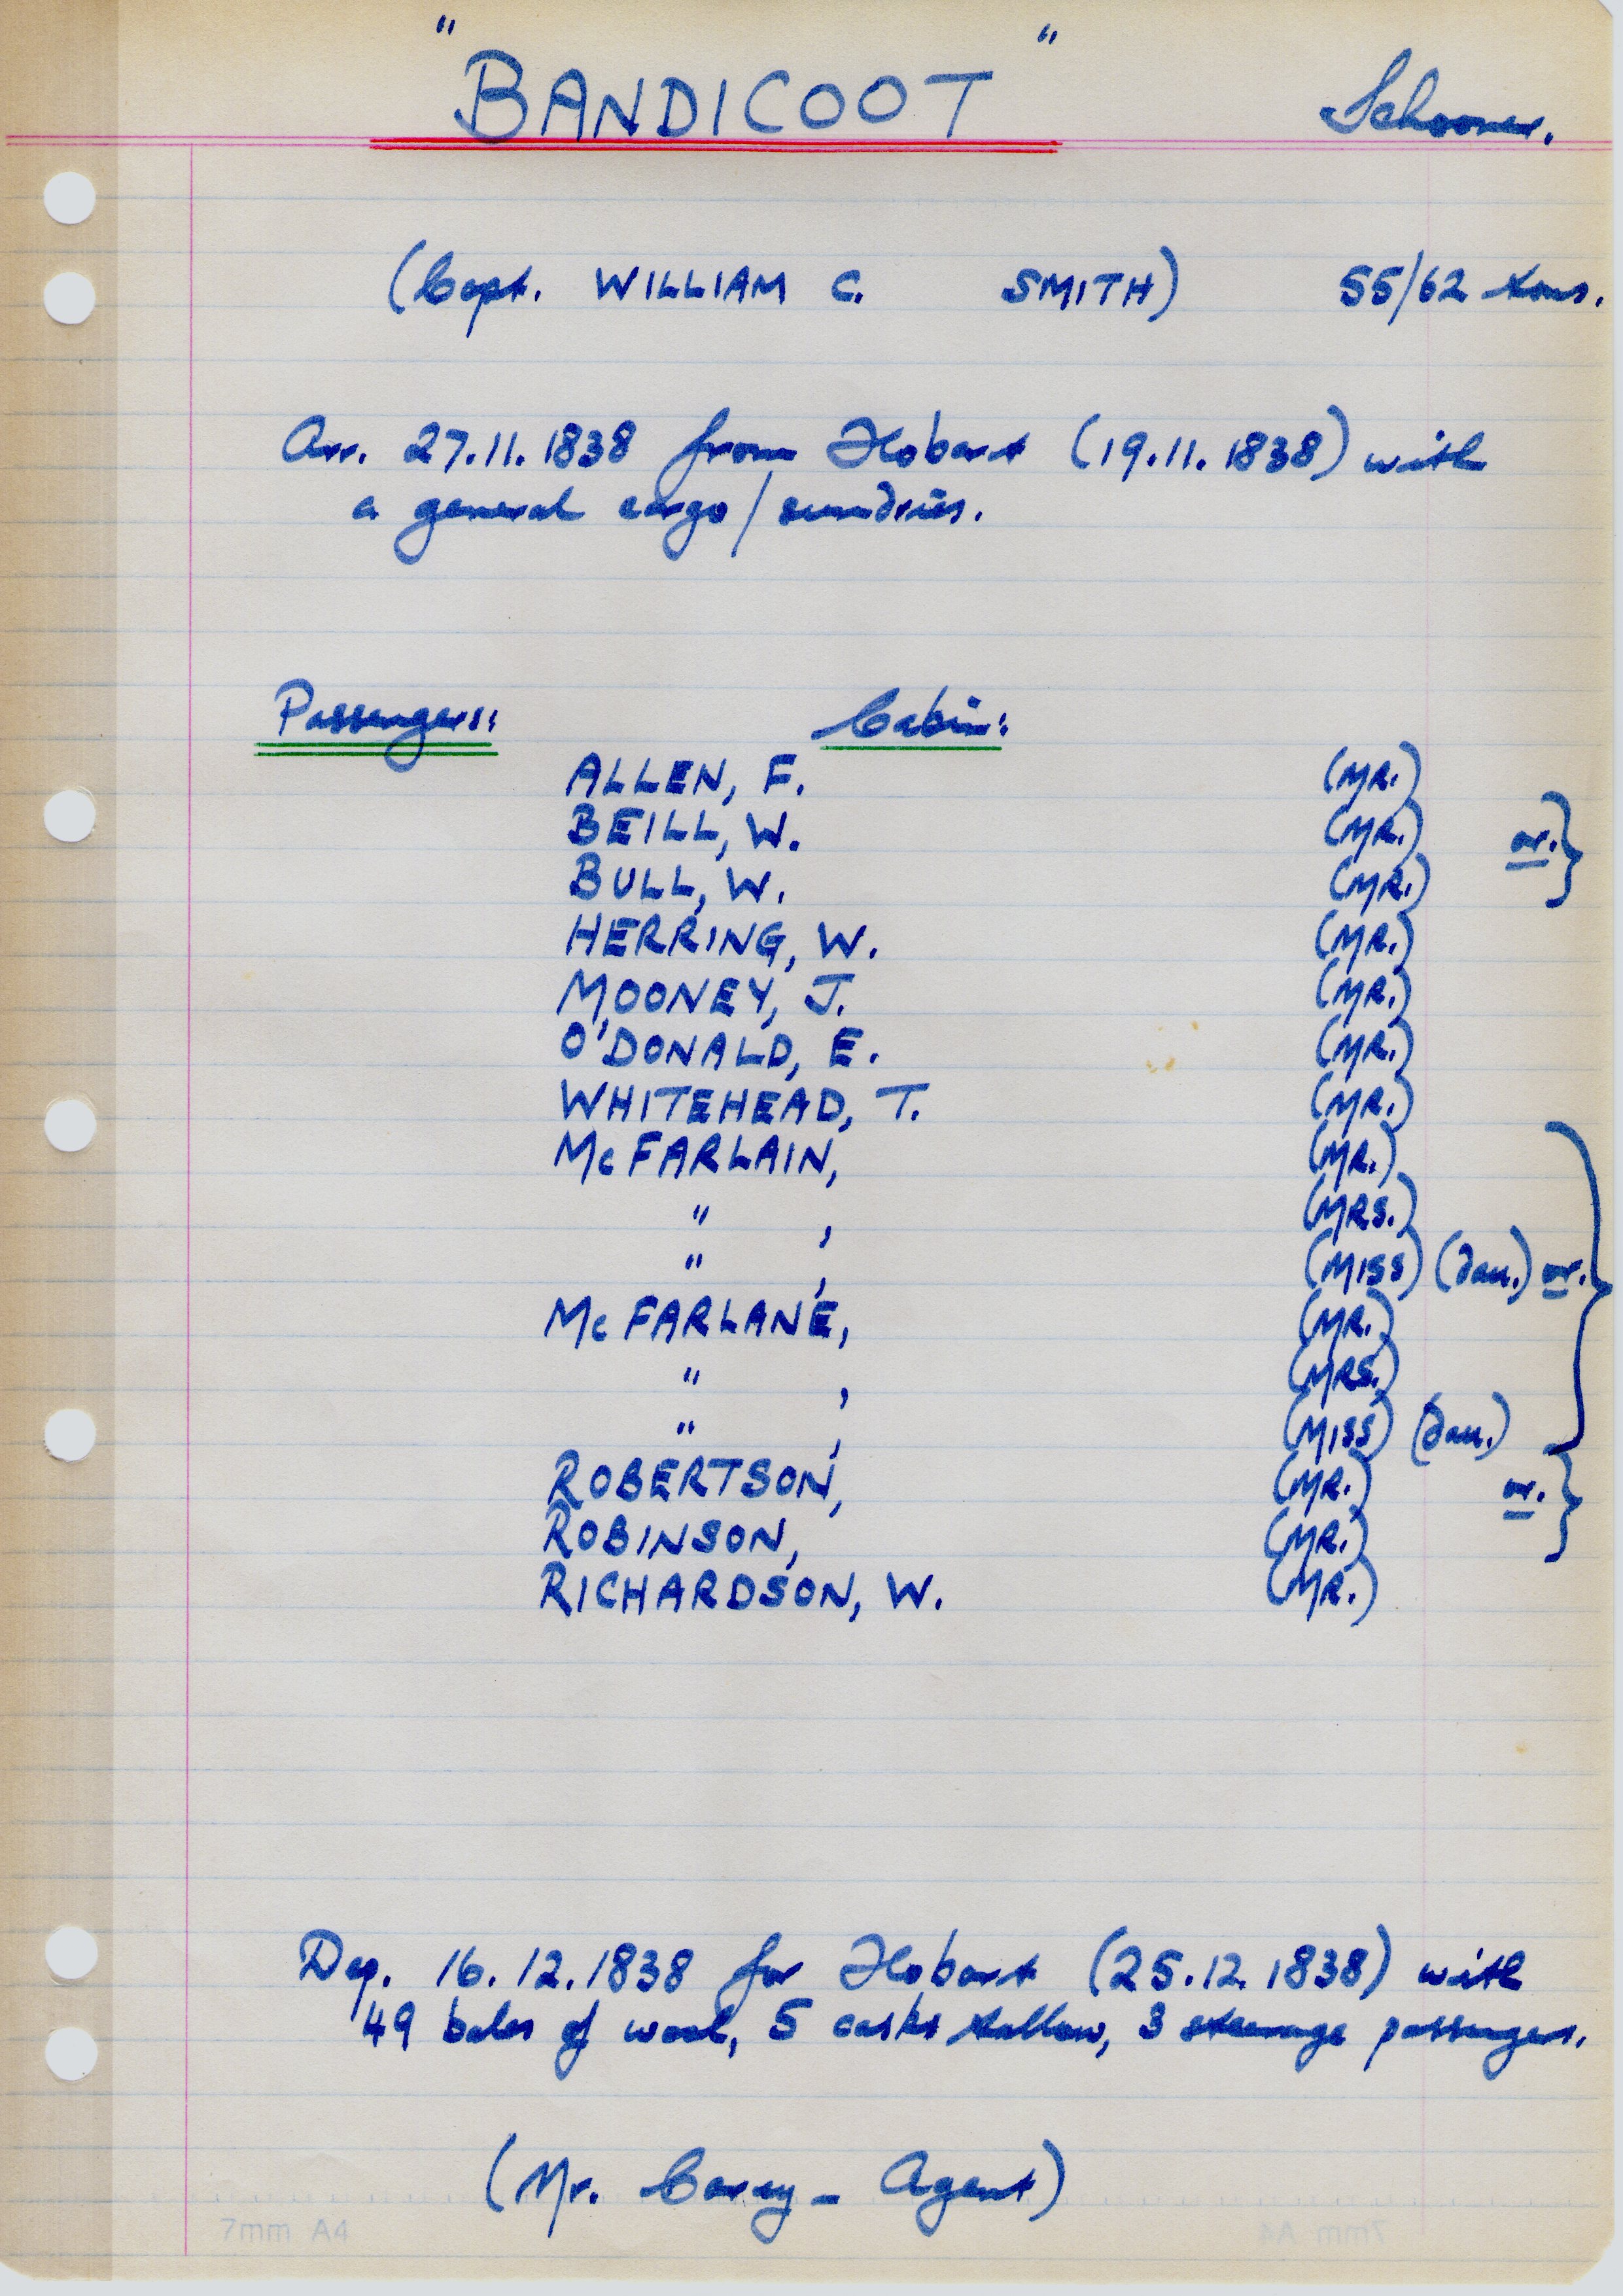 "BANDICOOT" Schooner.
(Capt. WILLIAM C. SMITH) 55/62 tons.
Arr. 27.11.1838 from Hobart (19.11.1838) with
a general cargo/sundries.
Passengers: Cabin:
ALLEN, F. (MR.)
BEILL, W. (MR.) or. }
BULL, W. (MR.)
HERRING, W. (MR.)
MOONEY, J. (MR.)
O'DONALD, E. (MR.)
WHITEHEAD, T. (MR.)
McFARLAIN, (MR.)
" , (MRS.)
" , (MISS) (dau.) or. }
McFARLANE, (MR.)
" , (MRS.)
" , (MISS) (dau.)
ROBERTSON, (MR.) or. }
ROBINSON, (MR.)
RICHARDSON, W. (MR.)
Dep. 16.12.1838 for Hobart (25.12.1838) with
49 bales of wool, 5 casks tallow, 3 steerage passengers.
(Mr. Carey - Agent)
7mm A4